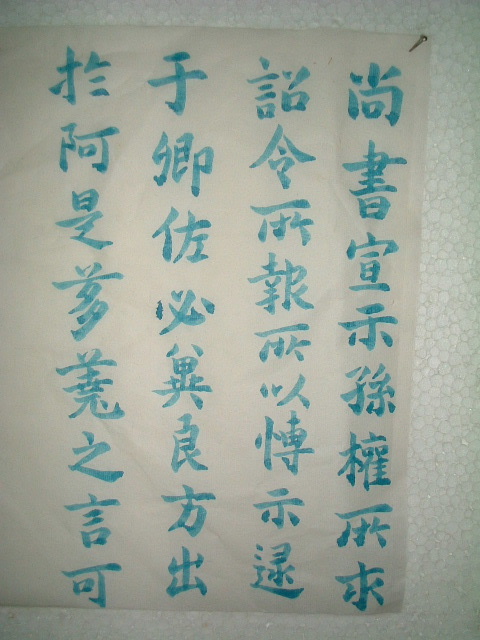 尚書宣示孫權所求
詔令所報所以博示逮
于卿佐必冀良方出
於阿是芻蕘之言可